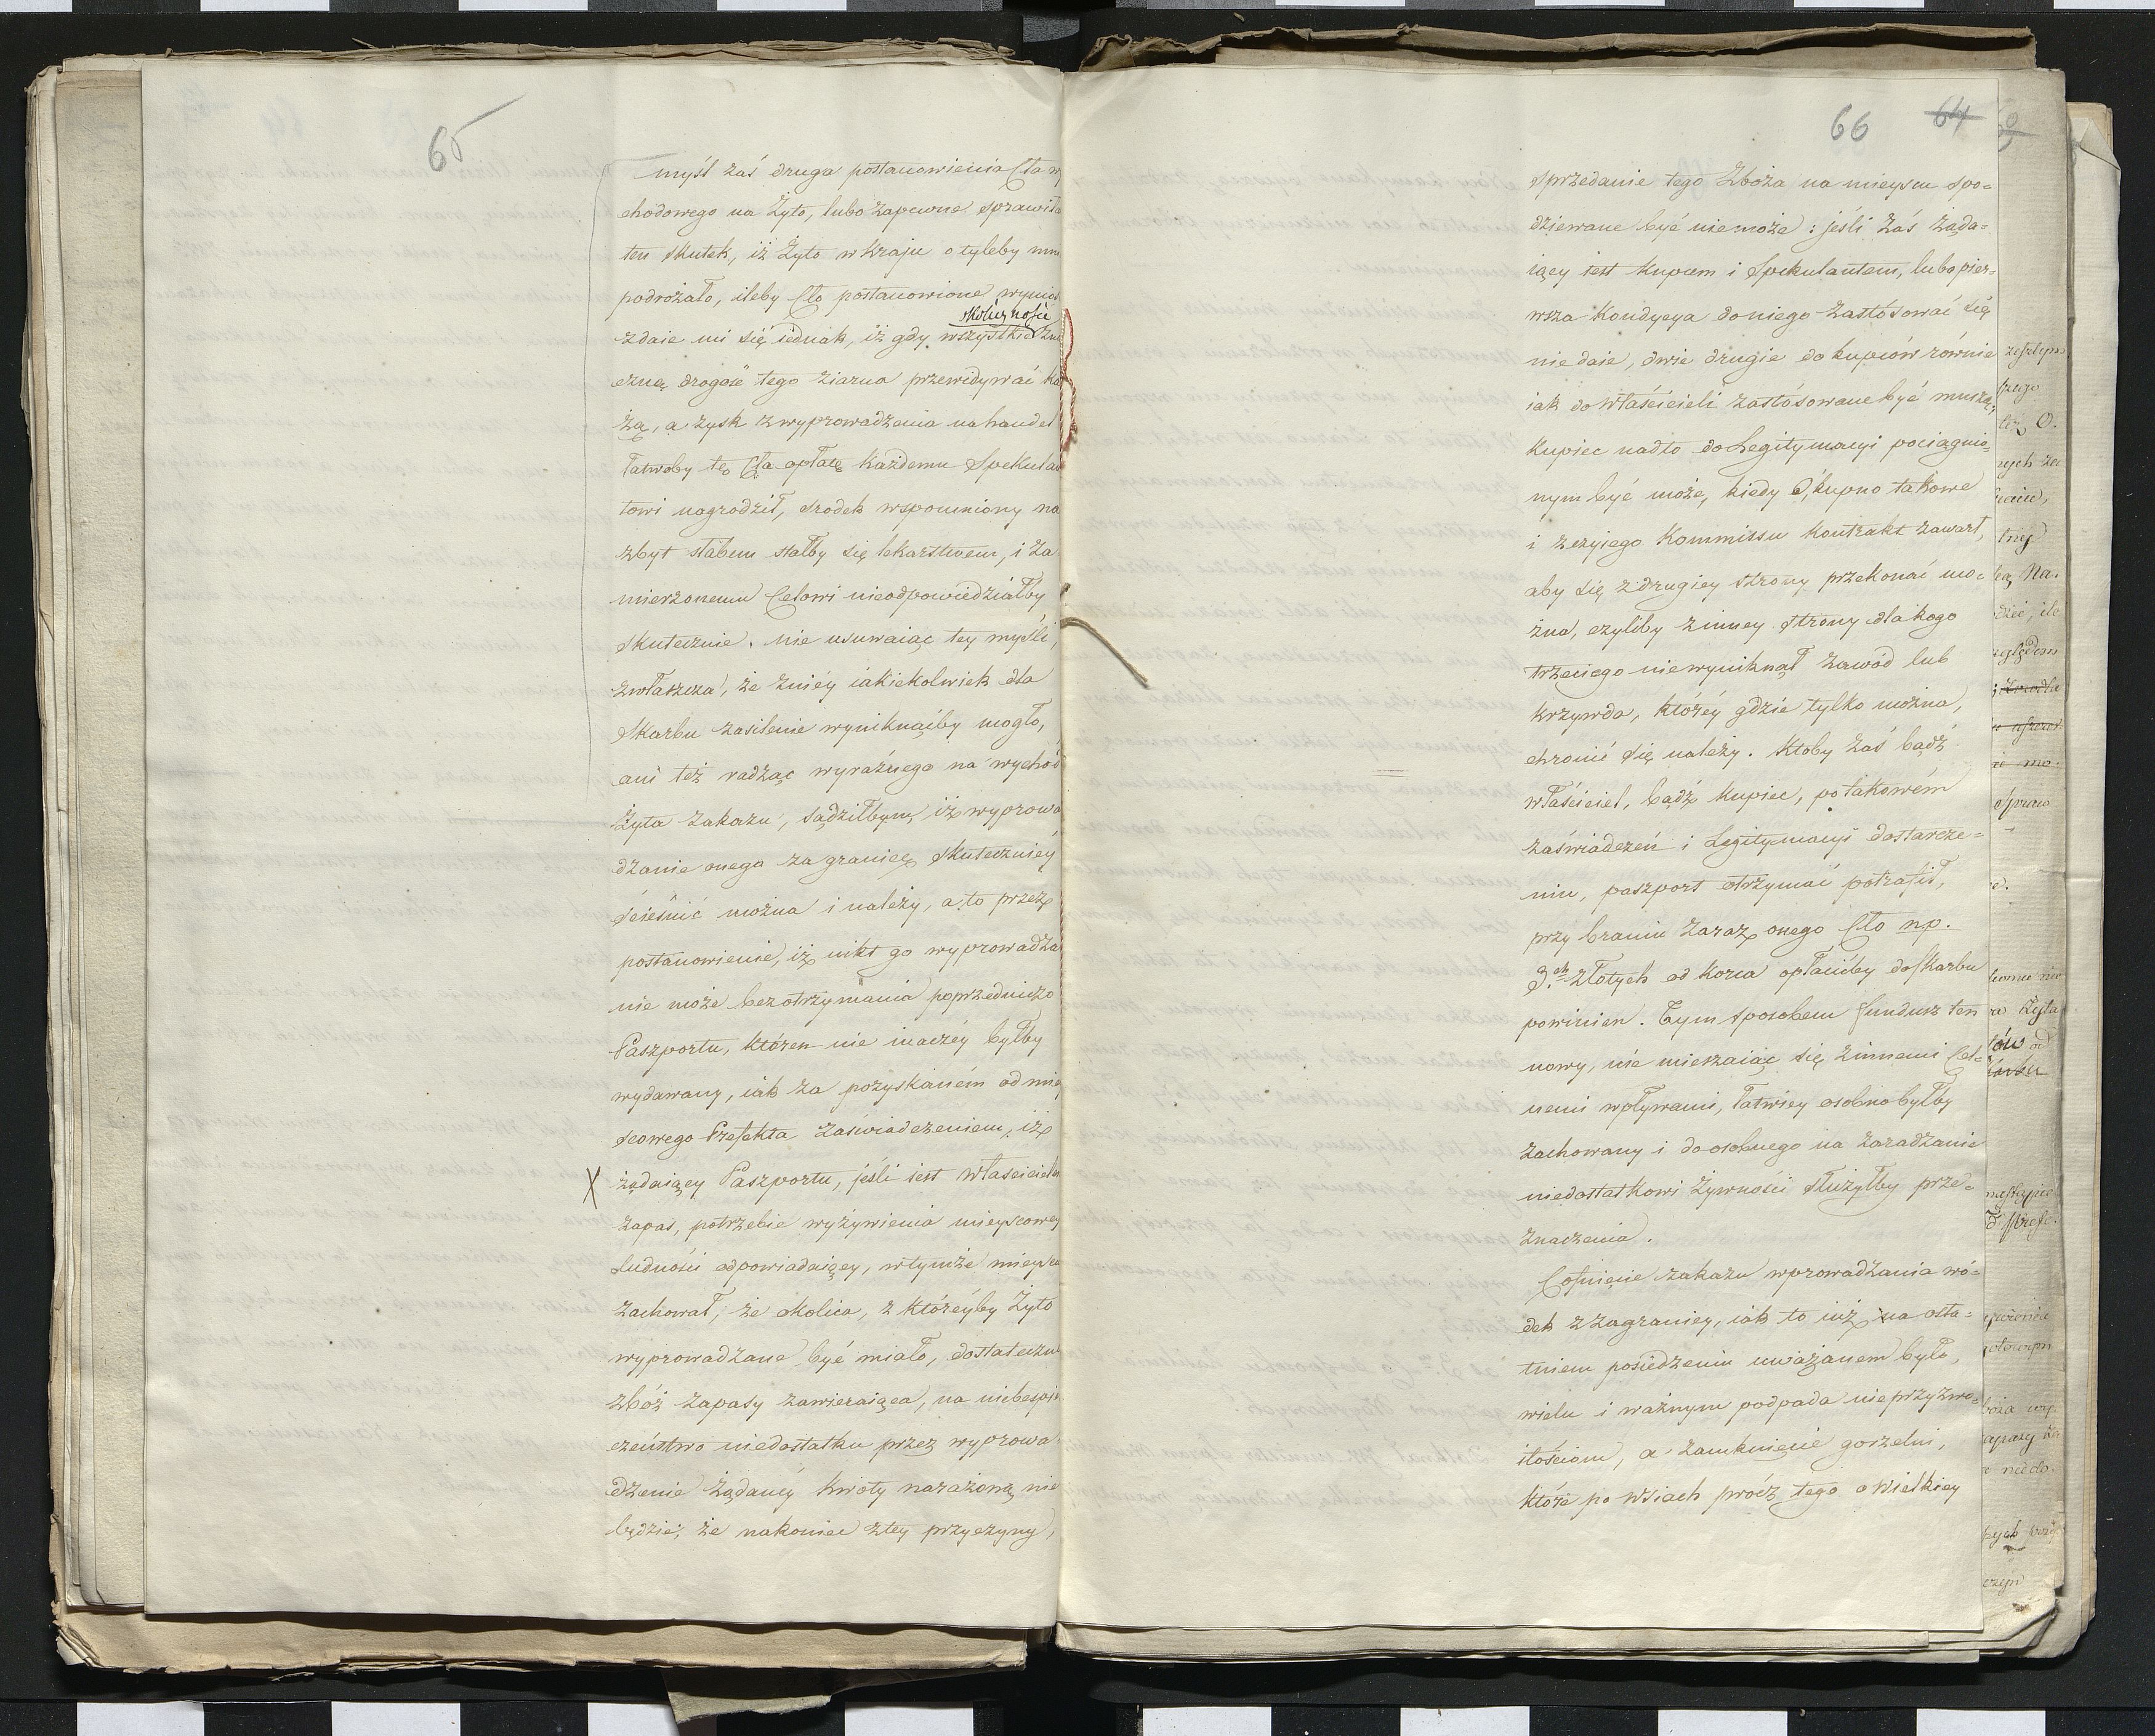 65
myśl zaś druga postanowienia Cła wy
chodowego na Żyto, lubo zapewne sprawiła
ten skutek, iż Żyto w Kraju o tyleby mni
podrożało, ileby Cło postanowione wynios
okoliczności
zdaie mi się iednak, iż gdy wszystkie zna
czną drogość tego ziarna przewidywać ka
żą, a zysk z wyprowadzenia na handel
łatwoby tę Cła opłatę każdemu Spekulan
towi nagrodził, środek wspomniony na
zbyt słabem stałby się lekarstwem, i za
mierzonemu Celowi nieodpowiedziałby
skutecznie. Nie usuwaiąc tey myśli,
zwłaszcza, że z niéy iakiekolwiek dla
Skarbu zasilenie wyniknąćby mogło,
ani też radząc wyraźnego na wychód
Żyta zakazu, sądziłbym, iż wyprowa
dzanie onego za granicę skuteczniéy
ścieśnić można i należy, a to przez
postanowienie, iż nikt go wyprowadza
nie może bez otrzymania poprzedniczo
Paszportu, któren nie inaczéy byłby
wydawany, iak za pozyskaném od miey
scowego Prefekta zaświadczeniem, iż
X żądaiący Paszportu, jeśli iest właścicielem
zapas, potrzebie wyżywienia mieyscowey
ludności odpowiadaiący, w tymże mieyscu
zachował, że okolica, z któréyby Żyto
wyprowadzane być miało, dostateczne
zbóż zapasy zawieraiąca, na niebespie
czeństwo niedostatku przez wyprowa
dzenie żądanéy kwoty narażoną nie
będzie; że nakoniec z tey przyczyny,
66 64
sprzedanie tego Zboża na mieyscu spo=
dziewane być niemoże: jeśli zaś żąda=
iący iest kupcem i Spekulantem, lubo pier=
wsza kondycya do niego zastósować się
nie daie, dwie drugie do kupców równie
iak do właścicieli zastósowane być muszą;
kupiec nadto do Legitymacyi pociągnio=
nym być może, kiedy O, kupno takowe
i z czyjego Kommissu kontrakt zawarł,
aby się z drugiey strony przekonać mo=
żna, czyliby z inney strony dla kogo
trzeciego niewyniknął zawód lub
krzywda, któréy gdzie tylko można,
chronić się należy. Ktoby zaś bądź
właściciel, bądź kupiec, po takowém
zaświadczeń i Legitymacyi dostarcze=
niu, paszport otrzymać potrafił,
przy braniu zaraz onego Cło np.
złotych od korca opłacićby do Skarbu
powinien. Tym sposobem fundusz ten
nowy, nie mieszaiąc się z innemi Cel=
nemi wpływami, łatwiey osobno byłby
zachowany i do osobnego na zaradzanie
niedostatkowi żywności służyłby prze=
znaczenia.
Cofnięcie zakazu wprowadzania wó=
dek z zagranicy, iak to iuż na osta=
tniem posiedzeniu uważanem było,
wielu i ważnym podpada nieprzyzwo=
itościom, a zamknięcie gorzelni,
które po wsiach prócz tego o wielkiey